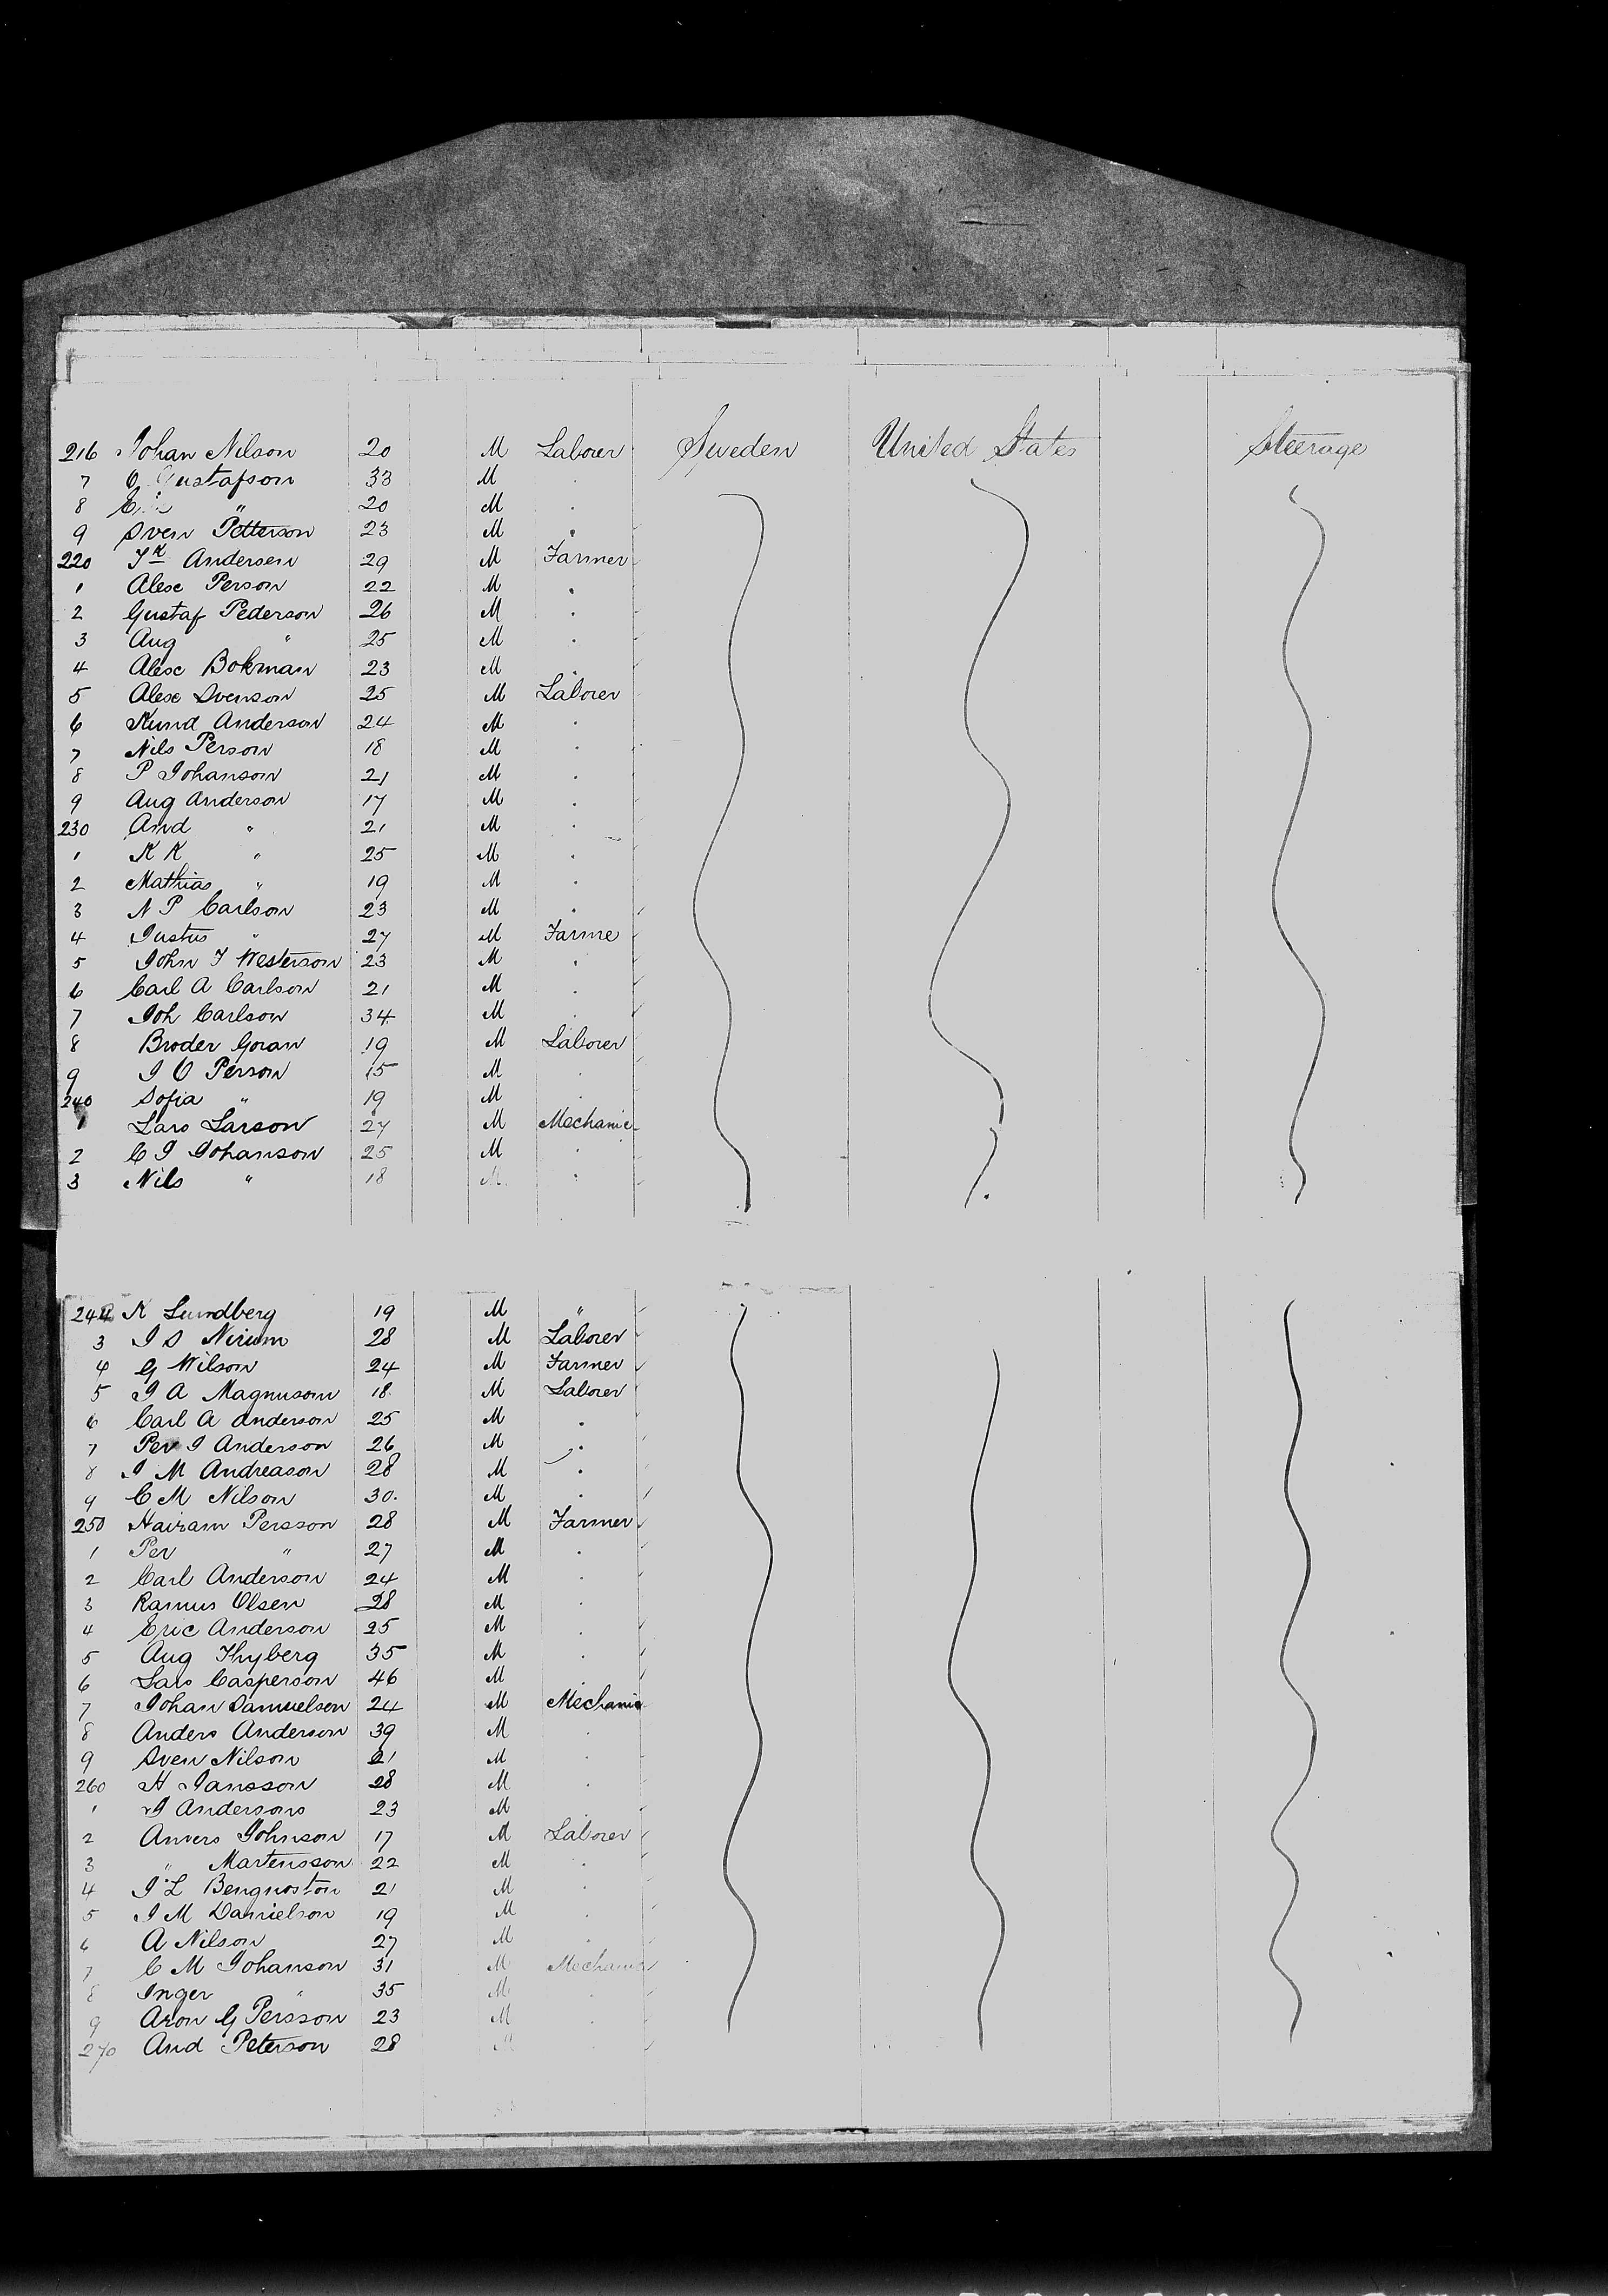 216 Johan Nilson 20 M Laborer Sweden United States Steerage
7 C Gustafson 33 M "
8 " 20 M "
9 Sven Petterson 23 M "
220 Fk Andersen 29 M Farmer
1 Alex Person 22 M "
2 Gustaf Pederson 26 M "
3 Aug " 25 M "
4 Alex Bokman 23 M "
5 Alex Svenson 25 M Laborer
6 Knud Anderson 24 M "
7 Nils Person 18 M "
8 P Johanson 21 M "
9 Aug Anderson 17 M "
230 And " 21 M "
1 K K " 25 M "
2 Mathias " 19 M "
3 N P Carlson 23 M "
4 Justus " 27 M Farme
5 John F Westerson 23 M "
6 Carl A Carlson 21 M "
7 Joh Carlson 34 M "
8 Broder Goran 19 M Laborer
9 J O Person 15 M "
240 Sofia " 19 M "
1 Lars Larson 27 M Mechanic
2 C J Johanson 25 M "
3 Nils " 18 M "
244 K Lundberg 19 M "
3 J S Nirum 28 M Laborer
4 G Wilson 24 M Farmer
5 J A Magnuson 18 M Laborer
6 Carl A Anderson 25 M "
7 Per J Anderson 26 M "
8 J M Andreason 28 M "
9 C M Nilson 30. M "
250 Hairam Persson 28 M Farmer
1 Per " 27 M "
2 Carl Anderson 24 M "
3 Ramus Olsen 28 M "
4 Eric Anderson 25 M "
5 Aug Thyberg 35 M "
6 Lars Casperson 46 M "
7 Johan Samuelson 24 M Mechanic
8 Anders Anderson 39 M "
9 Sven Nilson 21 M "
260 H Jansson 28 M "
1 J Andersons 23 M "
2 Anvers Johnson 17 M Laborer
3 " Martensson 22 M "
4 J L Bengnoston 21 M "
5 J M Danielson 19 M "
6 A Nilson 27 M "
7 C M Johanson 31 M Mechanic
8 Inger " 35 M "
9 Aron G Persson 23 M "
270 And Peterson 28 M "